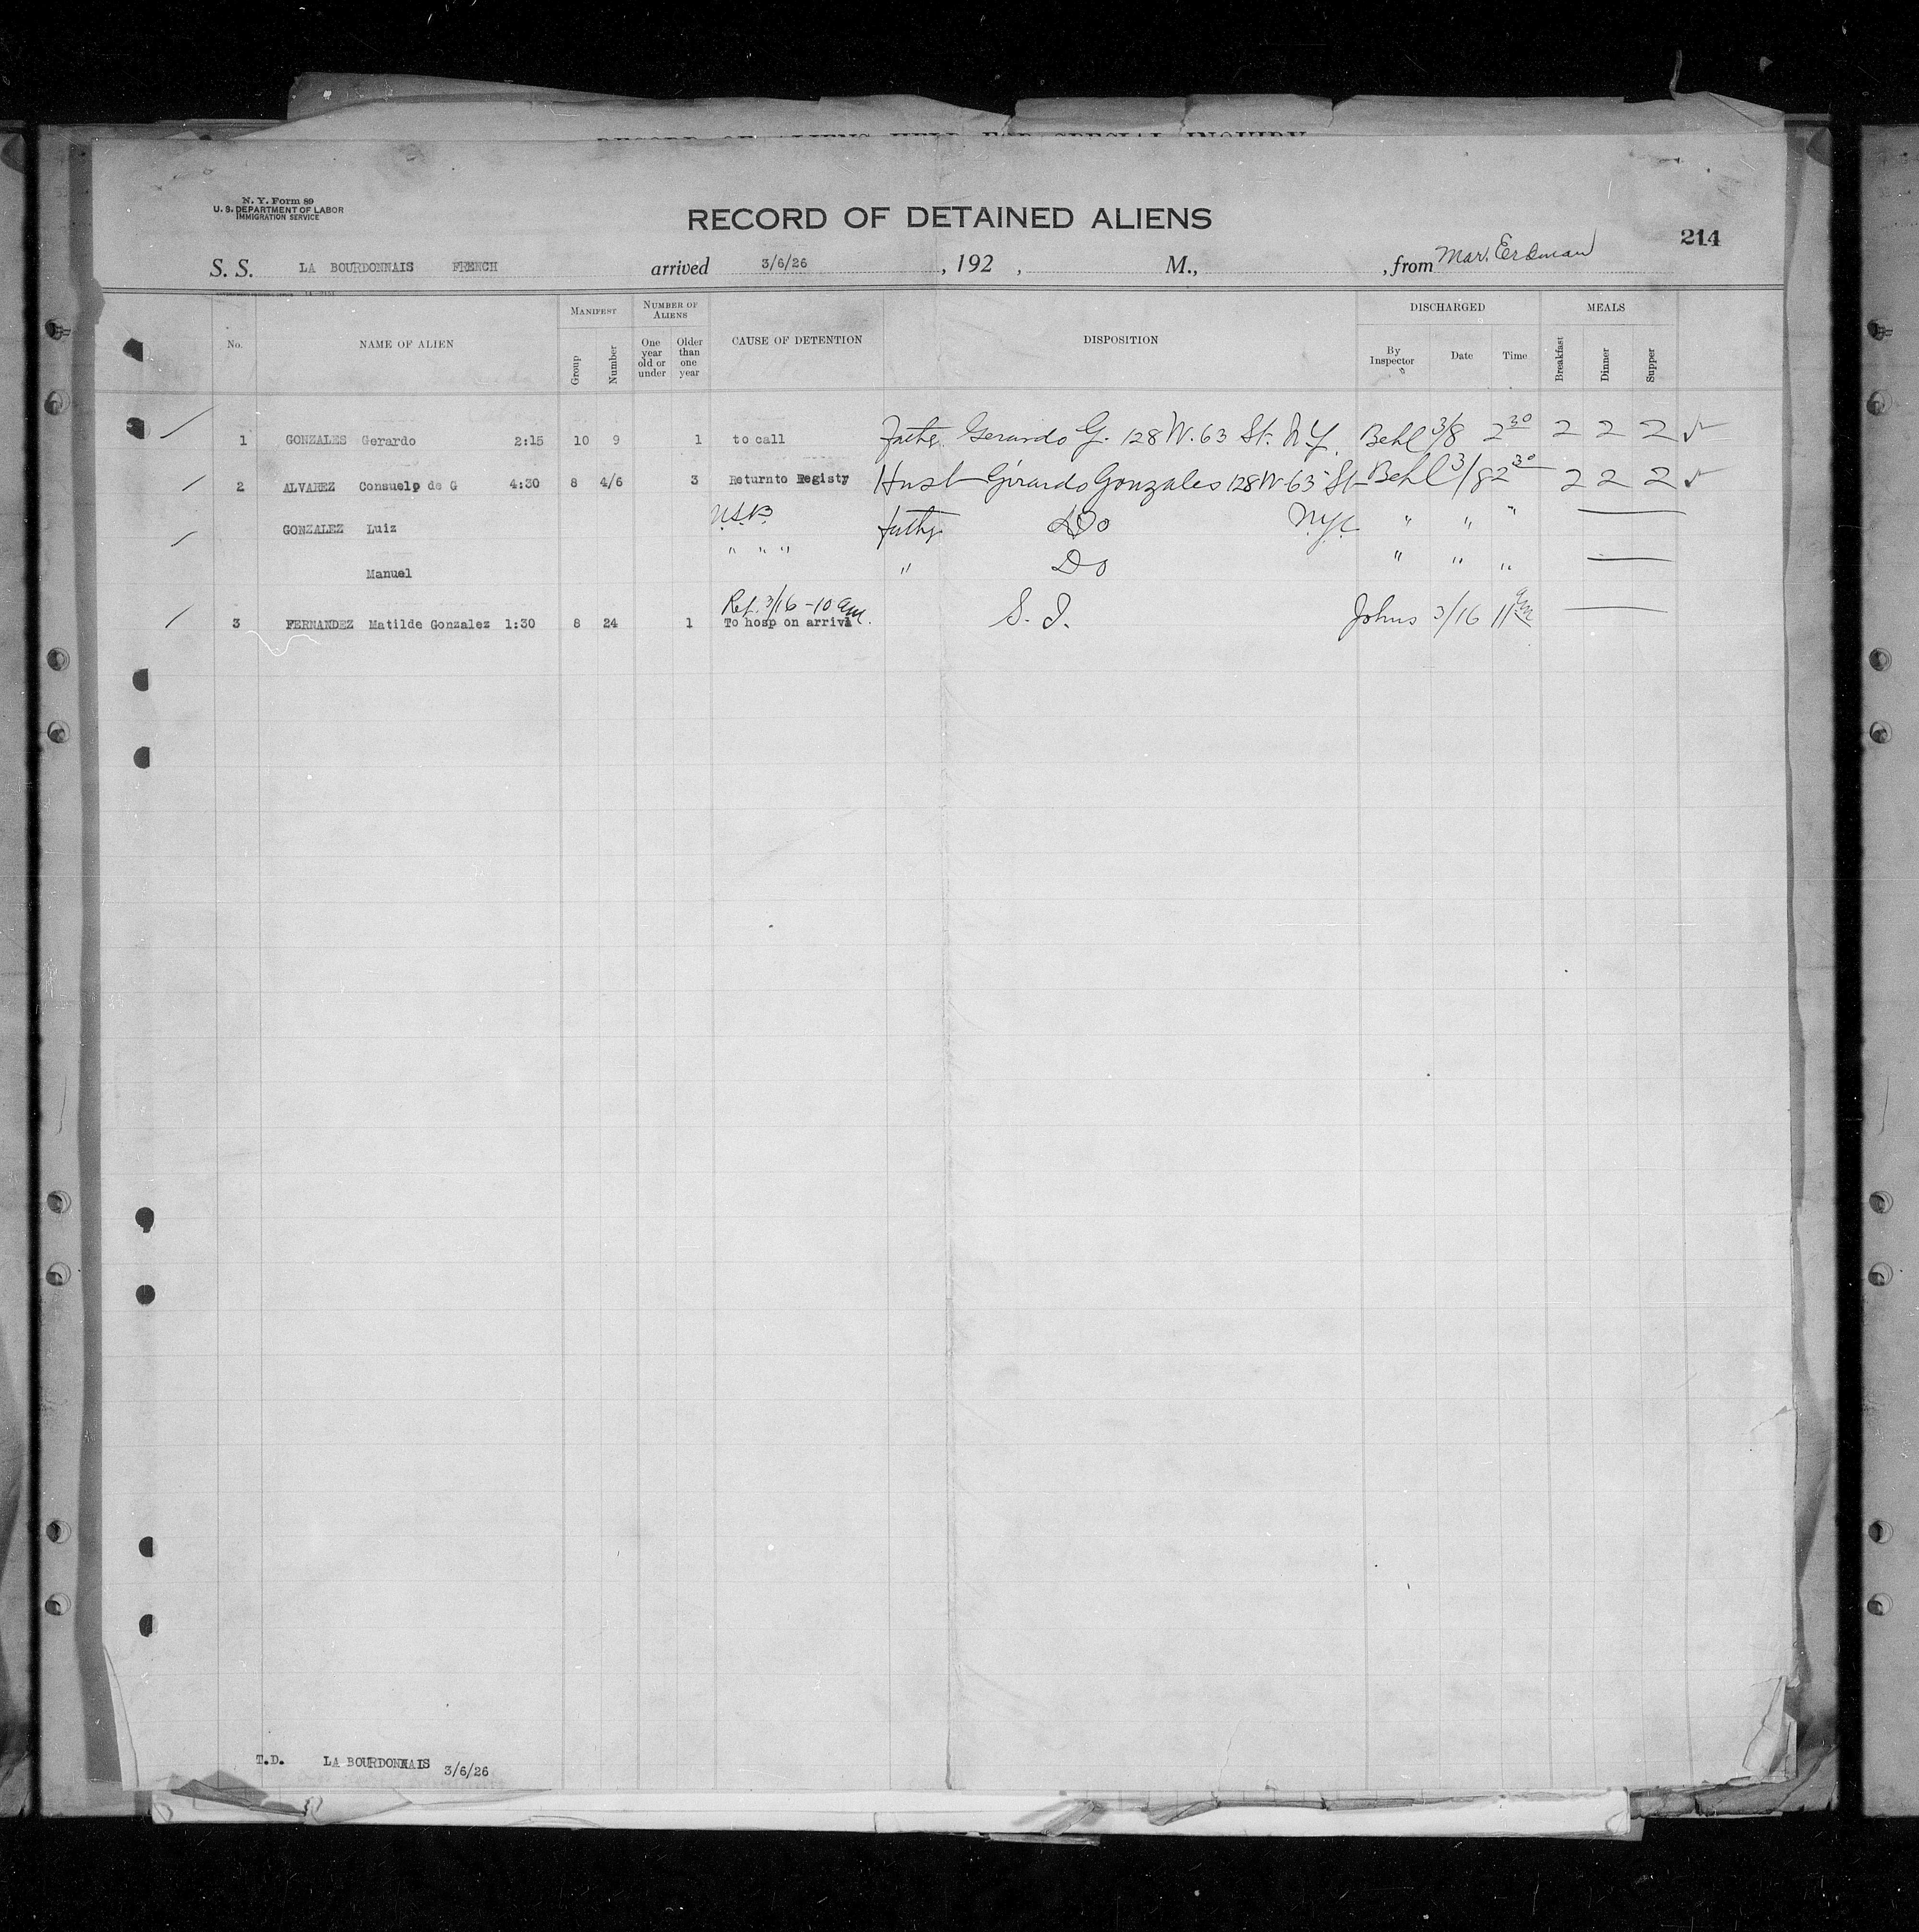 N. Y. Form 89
U. S. DEPARTMENT OF LABOR
IMMIGRATION SERVICE
RECORD OF DETAINED ALIENS
214
S. S. LA BOURDONNAIS FRENCH arrived 3/6/26, 192 , M., , from Mar. Erdman
No. NAME OF ALIEN MANIFEST Group Number NUMBER OF ALIENS One year old or under Older than one year CAUSE OF DETENTION DISPOSITION DISCHARGED By Inspector Date Time MEALS Breakfast Dinner Supper
1 GONZALES Gerardo 2:15 10 9 1 to call Fathr Gerardo G. 128 W. 63 St. N.Y. Behl 3/8 2 30 2 2 2 ✓
2 ALVAREZ Consuelo de G 4:30 8 4/6 3 Returnto Registy Husb Girardo Gonzales 128 W-63-St- Behl 3/8 2 30 2 2 2 ✓
GONZALEZ Luiz U.S.B. fathr Do N.Y.C. " " " —
Manuel " " " " Do " " " —
Ret. 3/16 - 10 am.
3 FERNANDEZ Matilde Gonzalez 1:30 8 24 1 To hosp on arrival S. I. Johns 3/16 11 am —
T.D. LA BOURDONNAIS 3/6/26